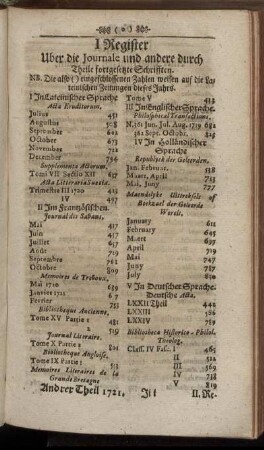 I Register
Uber die Journale und andere durch
Theile fortgesetzte Schrifften.
NB. Die also ( ) eingeschlossenen Zahlen weisen auf die La-
teinischen Zeitungen dieses Jahrs.
I In Lateinischer Sprache
Acta Eruditorum,
Julius 451
Augustus 508
September 602
October 673
November
December 794
Supplementa Actorum.
Tomi VII Sectio XII
Acta Litteraria Sueciæ.
Trimestre III 1720
IV 497
II Im Frantzösischen.
Journal des Savans,
Mai
Juin 617
Juillet 637
Août
September
October 809
Memoires de Trevoux,
Mai 1720
Januar 1721 617
Fevrier 753
Bibliotheque Ancienne,
Tome XV Partie 1 481
2 519
Journal Literaire.
Tome X Partie 2
Bibliotheque Angloise,
Tome IX Partie 1
Memoires Literaires de la
Grande Bretagne
Tome V 413
III In Englischer Sprache
Philosophical Transactions,
N.361 Jun. Jul. Aug. 1719 681
362 Sept. Octobr. 825
IV In Holländischer
Sprache
Republyk der Geleerden.
Jan. Februar. 558
Maert, April 753
Mai, Juny 777
Maendelyke Uittreksels of
Boekzael der Geleerde
Werelt.
January 611
February 645
Maert 697
April
Mai
Juny 753
July 810
V In Deutscher Sprache.
Deutsche Acta.
LXXII Theil 442
LXXIII 586
LXXIV 759
Bibliotheca Historico-Philol.
Theolog.
Class. IV Fasc. I 465
II
III
IV
V 819
Andrer Theil 1721. Iii II. Re-